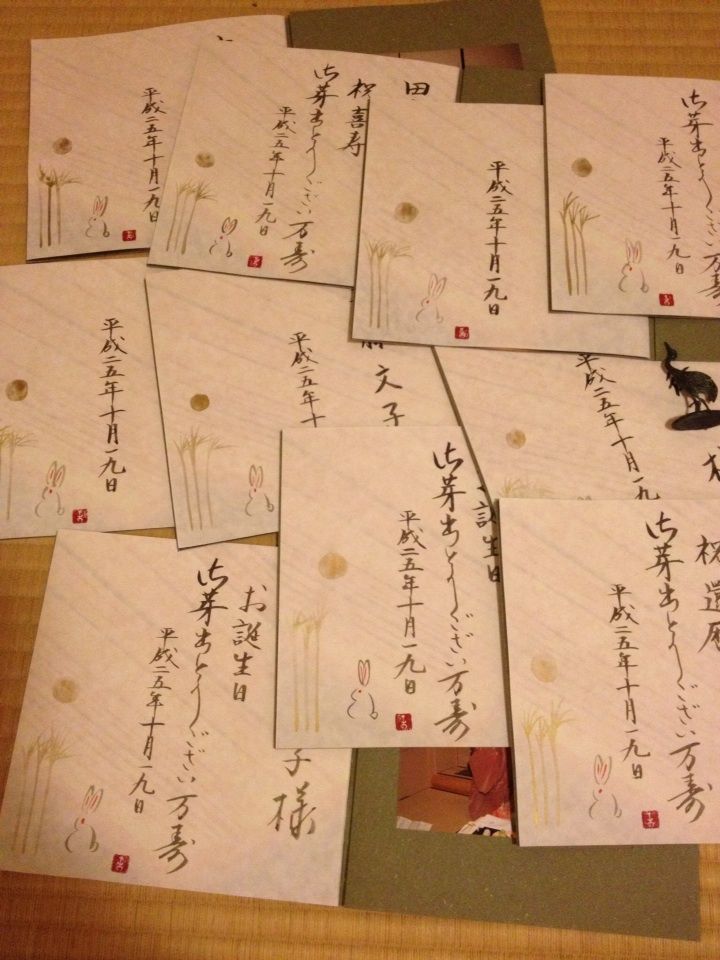 平成二五年十月一九日
田
祝喜寿
御芽出とうござい万寿
平成二五年十月一九日
平成二五年十月一九日
御芽出とうござい万寿
平成二五年十月一九日
平成二五年十月一九日
文子
平成二五年十
平成二五年十月一九日
誕生日
御芽出とうござい万寿
平成二五年十月一九日
祝還暦
御芽出とうござい万寿
平成二五年十月一九日
子様
お誕生日
御芽出とうござい万寿
平成二五年十月一九日